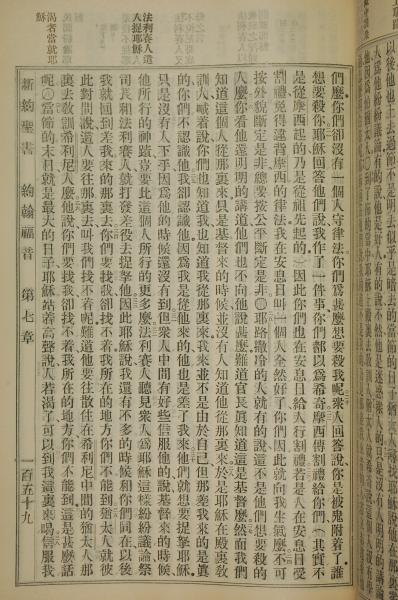 們麼你們卻沒有一個人守律法你們爲甚麼想要殺我呢衆人回答說你是被鬼附着了誰
想要殺你耶穌回答他們說我作了一件事你們都以爲希奇摩西傳割禮給你們（其實不
是從摩西起的乃是從祖先起的）因此你們也在安息日給人行割禮若是人在安息日受
割禮免得違背摩西的律法我在安息日叫一個人全然好了你們因此就向我生氣麼不可
按外貌斷定是非總要按公平斷定是非○耶路撒冷的人就有的說這不是他們想要殺的
人麼你看他還明明的講道他們也不向他說甚麼難道官長眞知道這是基督麼然而我們
知道這個人從那裏來只是基督來的時候並沒有人知道他從那裏來於是耶穌在殿裏敎
訓人喊着說你們也知道我也知道我從那裏來我來並不是由於自己但那差我來的是眞
的你們不認識他我卻認識他因爲我是從他來的他也是差了我來他們就想要捉拏耶穌
只是沒有人下手因爲他的時候還沒有到但衆人中間有好些信服他的說基督來的時候
法利賽人遣
人捉耶穌
他所行的神蹟豈要比這個人所行的更多麼法利賽人聽見衆人爲耶穌這樣紛紛議論祭
司長和法利賽人就打發差役去捉拏他因此耶穌說我還有不多的時候和你們同在以後
我就回到差我來的那裏去你們要找我卻找不着我所在的地方你們不能到猶太人就彼
此對問說這人要往那裏去叫我們找不着呢難道他要往散住在希利尼中間的猶太人那
裏去敎訓希利尼人麼他說你們要找我卻找不着我所在的地方你們不能到這是甚麼話
渴者當就耶
穌
呢○當節的末日就是最大的日子耶穌站着高聲說人若渴了可以到我這裏來喝信服我
新約聖書 約翰福音 第七章 一百五十九